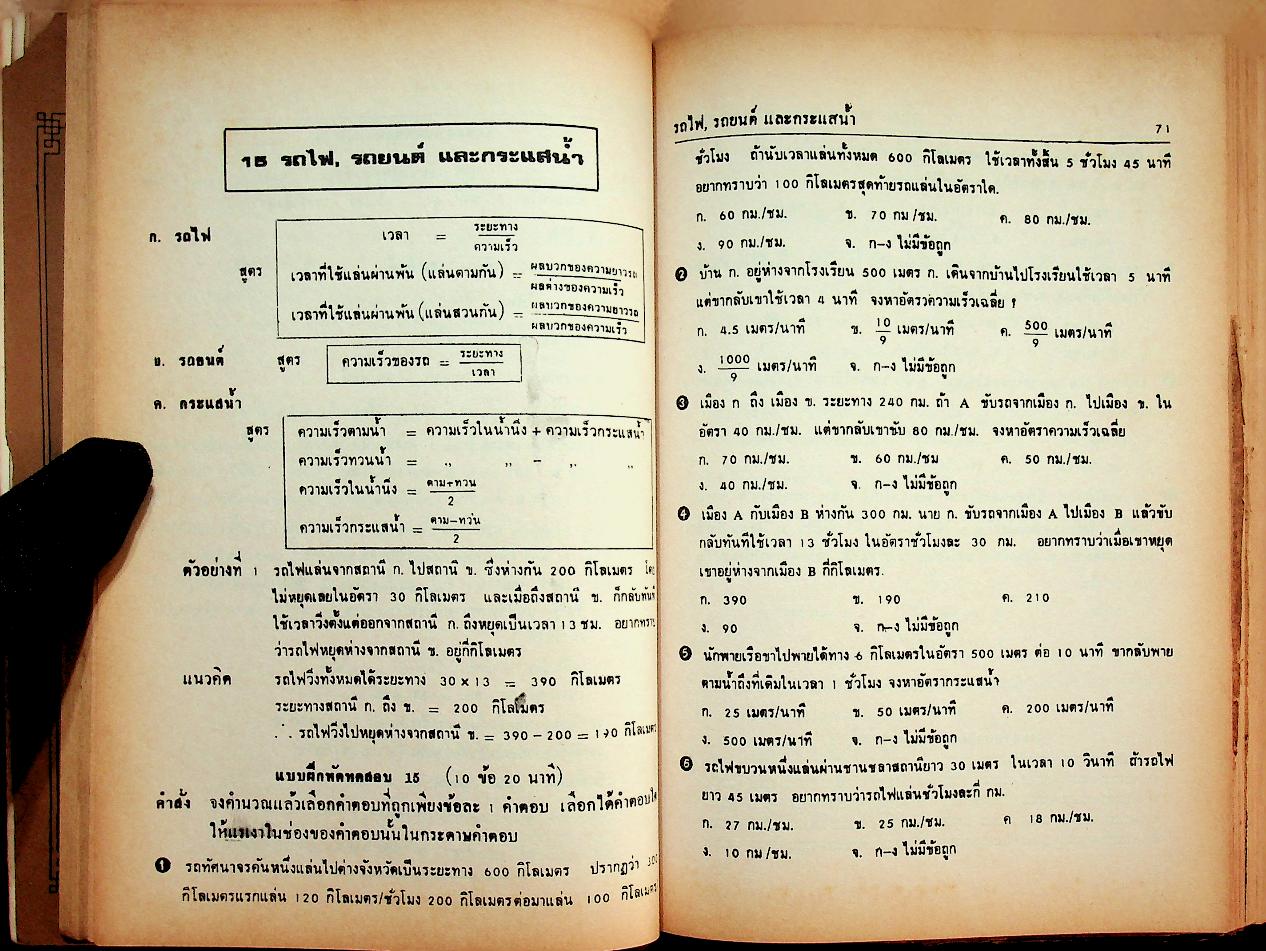 15 รถไฟ, รถยนต์ และกระแสน้ำ
ก. รถไฟ
สูตร
เวลา = ระยะทาง / ความเร็ว
เวลาที่ใช้แล่นผ่านพ้น (แล่นตามกัน) = ผลบวกของความยาวรถ / ผลต่างของความเร็ว
เวลาที่ใช้แล่นผ่านพ้น (แล่นสวนกัน) = ผลบวกของความยาวรถ / ผลบวกของความเร็ว
ข. รถยนต์ สูตร ความเร็วของรถ = ระยะทาง / เวลา
ค. กระแสน้ำ
สูตร ความเร็วตามน้ำ = ความเร็วในน้ำนิ่ง + ความเร็วกระแสน้ำ
ความเร็วทวนน้ำ = ,, ,, – ,, ,,
ความเร็วในน้ำนิ่ง = ตาม+ทวน / 2
ความเร็วกระแสน้ำ = ตาม–ทวน / 2
ตัวอย่างที่ 1 รถไฟแล่นจากสถานี ก. ไปสถานี ข. ซึ่งห่างกัน 200 กิโลเมตร
ไม่หยุดเลยในอัตรา 30 กิโลเมตร และเมื่อถึงสถานี ข. ก็กลับทันที
ใช้เวลาวิ่งตั้งแต่ออกจากสถานี ก. ถึงหยุดเป็นเวลา 13 ชม. อยากทราบ
ว่ารถไฟหยุดห่างจากสถานี ข. อยู่กี่กิโลเมตร
แนวคิด รถไฟวิ่งทั้งหมดได้ระยะทาง 30 x 13 = 390 กิโลเมตร
ระยะทางสถานี ก. ถึง ข. = 200 กิโลเมตร
∴ รถไฟวิ่งไปหยุดห่างจากสถานี ข. = 390 – 200 = 190 กิโลเมตร
แบบฝึกหัดทดสอบ 15 (10 ข้อ 20 นาที)
คำสั่ง จงคำนวณแล้วเลือกคำตอบที่ถูกเพียงข้อละ 1 คำตอบ เลือกได้คำตอบใด
ให้แรเงาในช่องของคำตอบนั้นในกระดาษคำตอบ
1 รถทัศนาจรคันหนึ่งแล่นไปต่างจังหวัดเป็นระยะทาง 600 กิโลเมตร ปรากฏว่า 300
กิโลเมตรแรกแล่น 120 กิโลเมตร/ชั่วโมง 200 กิโลเมตรต่อมาแล่น 100 กิโลเมตร
รถไฟ, รถยนต์ และกระแสน้ำ 71
ชั่วโมง ถ้านับเวลาแล่นทั้งหมด 600 กิโลเมตร ใช้เวลาทั้งสิ้น 5 ชั่วโมง 45 นาที
อยากทราบว่า 100 กิโลเมตรสุดท้ายรถแล่นในอัตราใด.
ก. 60 กม./ชม. ข. 70 กม/ชม. ค. 80 กม./ชม.
ง. 90 กม./ชม. จ. ก–ง ไม่มีข้อถูก
2 บ้าน ก. อยู่ห่างจากโรงเรียน 500 เมตร ก. เดินจากบ้านไปโรงเรียนใช้เวลา 5 นาที
แต่ขากลับเขาใช้เวลา 4 นาที จงหาอัตราความเร็วเฉลี่ย ?
ก. 4.5 เมตร/นาที ข. 10/9 เมตร/นาที ค. 500/9 เมตร/นาที
ง. 1000/9 เมตร/นาที จ. ก–ง ไม่มีข้อถูก
3 เมือง ก ถึง เมือง ข. ระยะทาง 240 กม. ถ้า A ขับรถจากเมือง ก. ไปเมือง ข. ใน
อัตรา 40 กม./ชม. แต่ขากลับเขาขับ 80 กม./ชม. จงหาอัตราความเร็วเฉลี่ย
ก. 70 กม./ชม. ข. 60 กม./ชม ค. 50 กม./ชม.
ง. 40 กม./ชม. จ. ก–ง ไม่มีข้อถูก
4 เมือง A กับเมือง B ห่างกัน 300 กม. นาย ก. ขับรถจากเมือง A ไปเมือง B แล้วขับ
กลับทันทีใช้เวลา 13 ชั่วโมง ในอัตราชั่วโมงละ 30 กม. อยากทราบว่าเมื่อเขาหยุด
เขาอยู่ห่างจากเมือง B กี่กิโลเมตร.
ก. 390 ข. 190 ค. 210
ง. 90 จ. ก–ง ไม่มีข้อถูก
5 นักพายเรือขาไปพายได้ทาง 6 กิโลเมตรในอัตรา 500 เมตร ต่อ 10 นาที ขากลับพาย
ตามน้ำถึงที่เดิมในเวลา 1 ชั่วโมง จงหาอัตรากระแสน้ำ
ก. 25 เมตร/นาที ข. 50 เมตร/นาที ค. 200 เมตร/นาที
ง. 500 เมตร/นาที จ. ก–ง ไม่มีข้อถูก
6 รถไฟขบวนหนึ่งแล่นผ่านชานชลาสถานียาว 30 เมตร ในเวลา 10 วินาที ถ้ารถไฟ
ยาว 45 เมตร อยากทราบว่ารถไฟแล่นชั่วโมงละกี่ กม.
ก. 27 กม./ชม. ข. 25 กม./ชม. ค 18 กม./ชม.
ง. 10 กม/ชม. จ. ก–ง ไม่มีข้อถูก